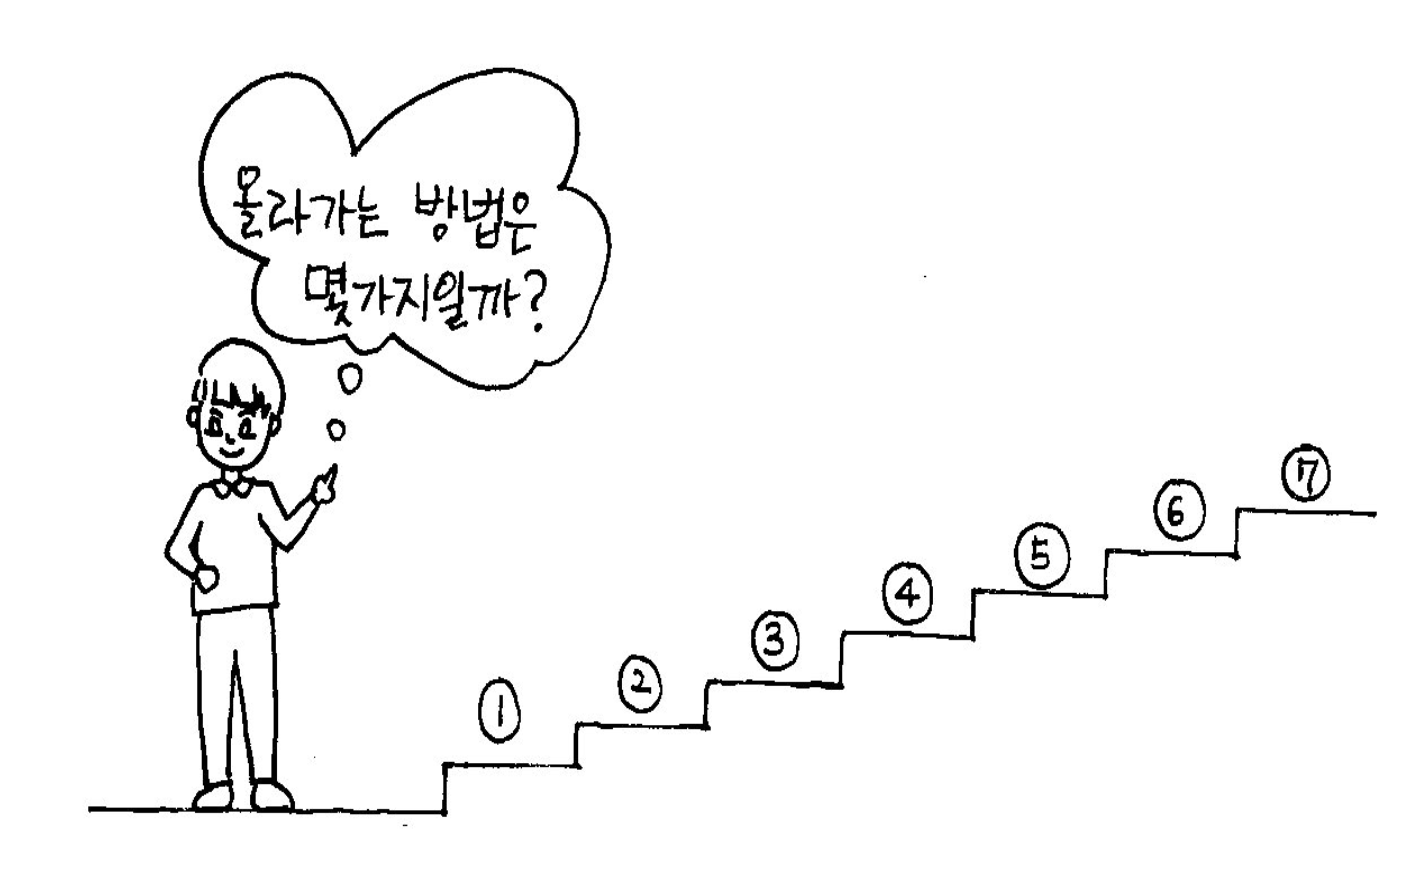 올라가는 방법은
몇가지일까?
①
②
③
④
⑤
⑥
⑦